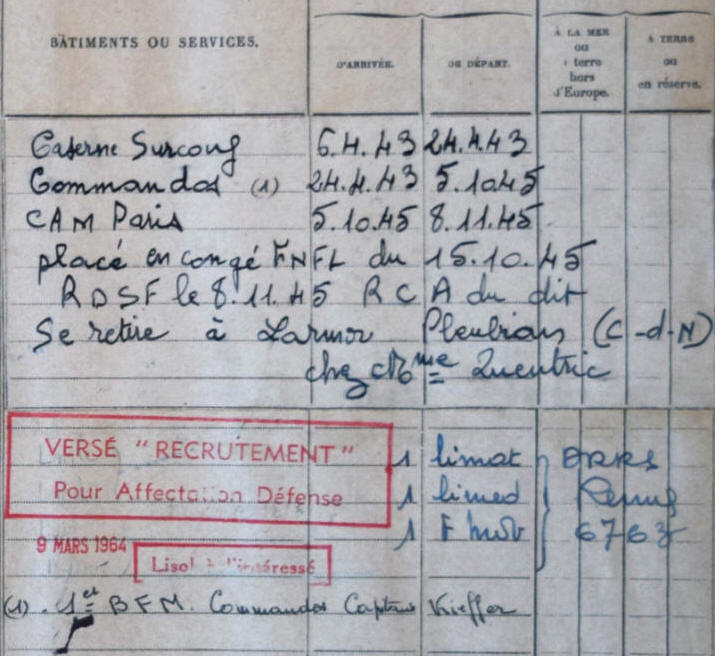 BÀTIMENTS OU SERVICES.
D'ARRIVÉE.
DE DÉPART.
À LA MER
ou
à terre
hors
d'Europe.
A TERRE
ou
en réserve.
Caserne Surcouf 6.4.43 24.4.43
Commandos (1) 24.4.43 5.10.45
CAM Paris 5.10.45 8.11.45
placé en congé FNFL du 15.10.45
RDSF le 8.11.45 RCA du dit
Se retire à Larmor Pleubian (C-d-N)
chez Mme Quentric
VERSÉ "RECRUTEMENT"
Pour Affectation Défense
1 limat
1 limed
1 F
6763
9 MARS 1964
l'intéressé
(1). 1er BFM. Commandos Captaine Kieffer